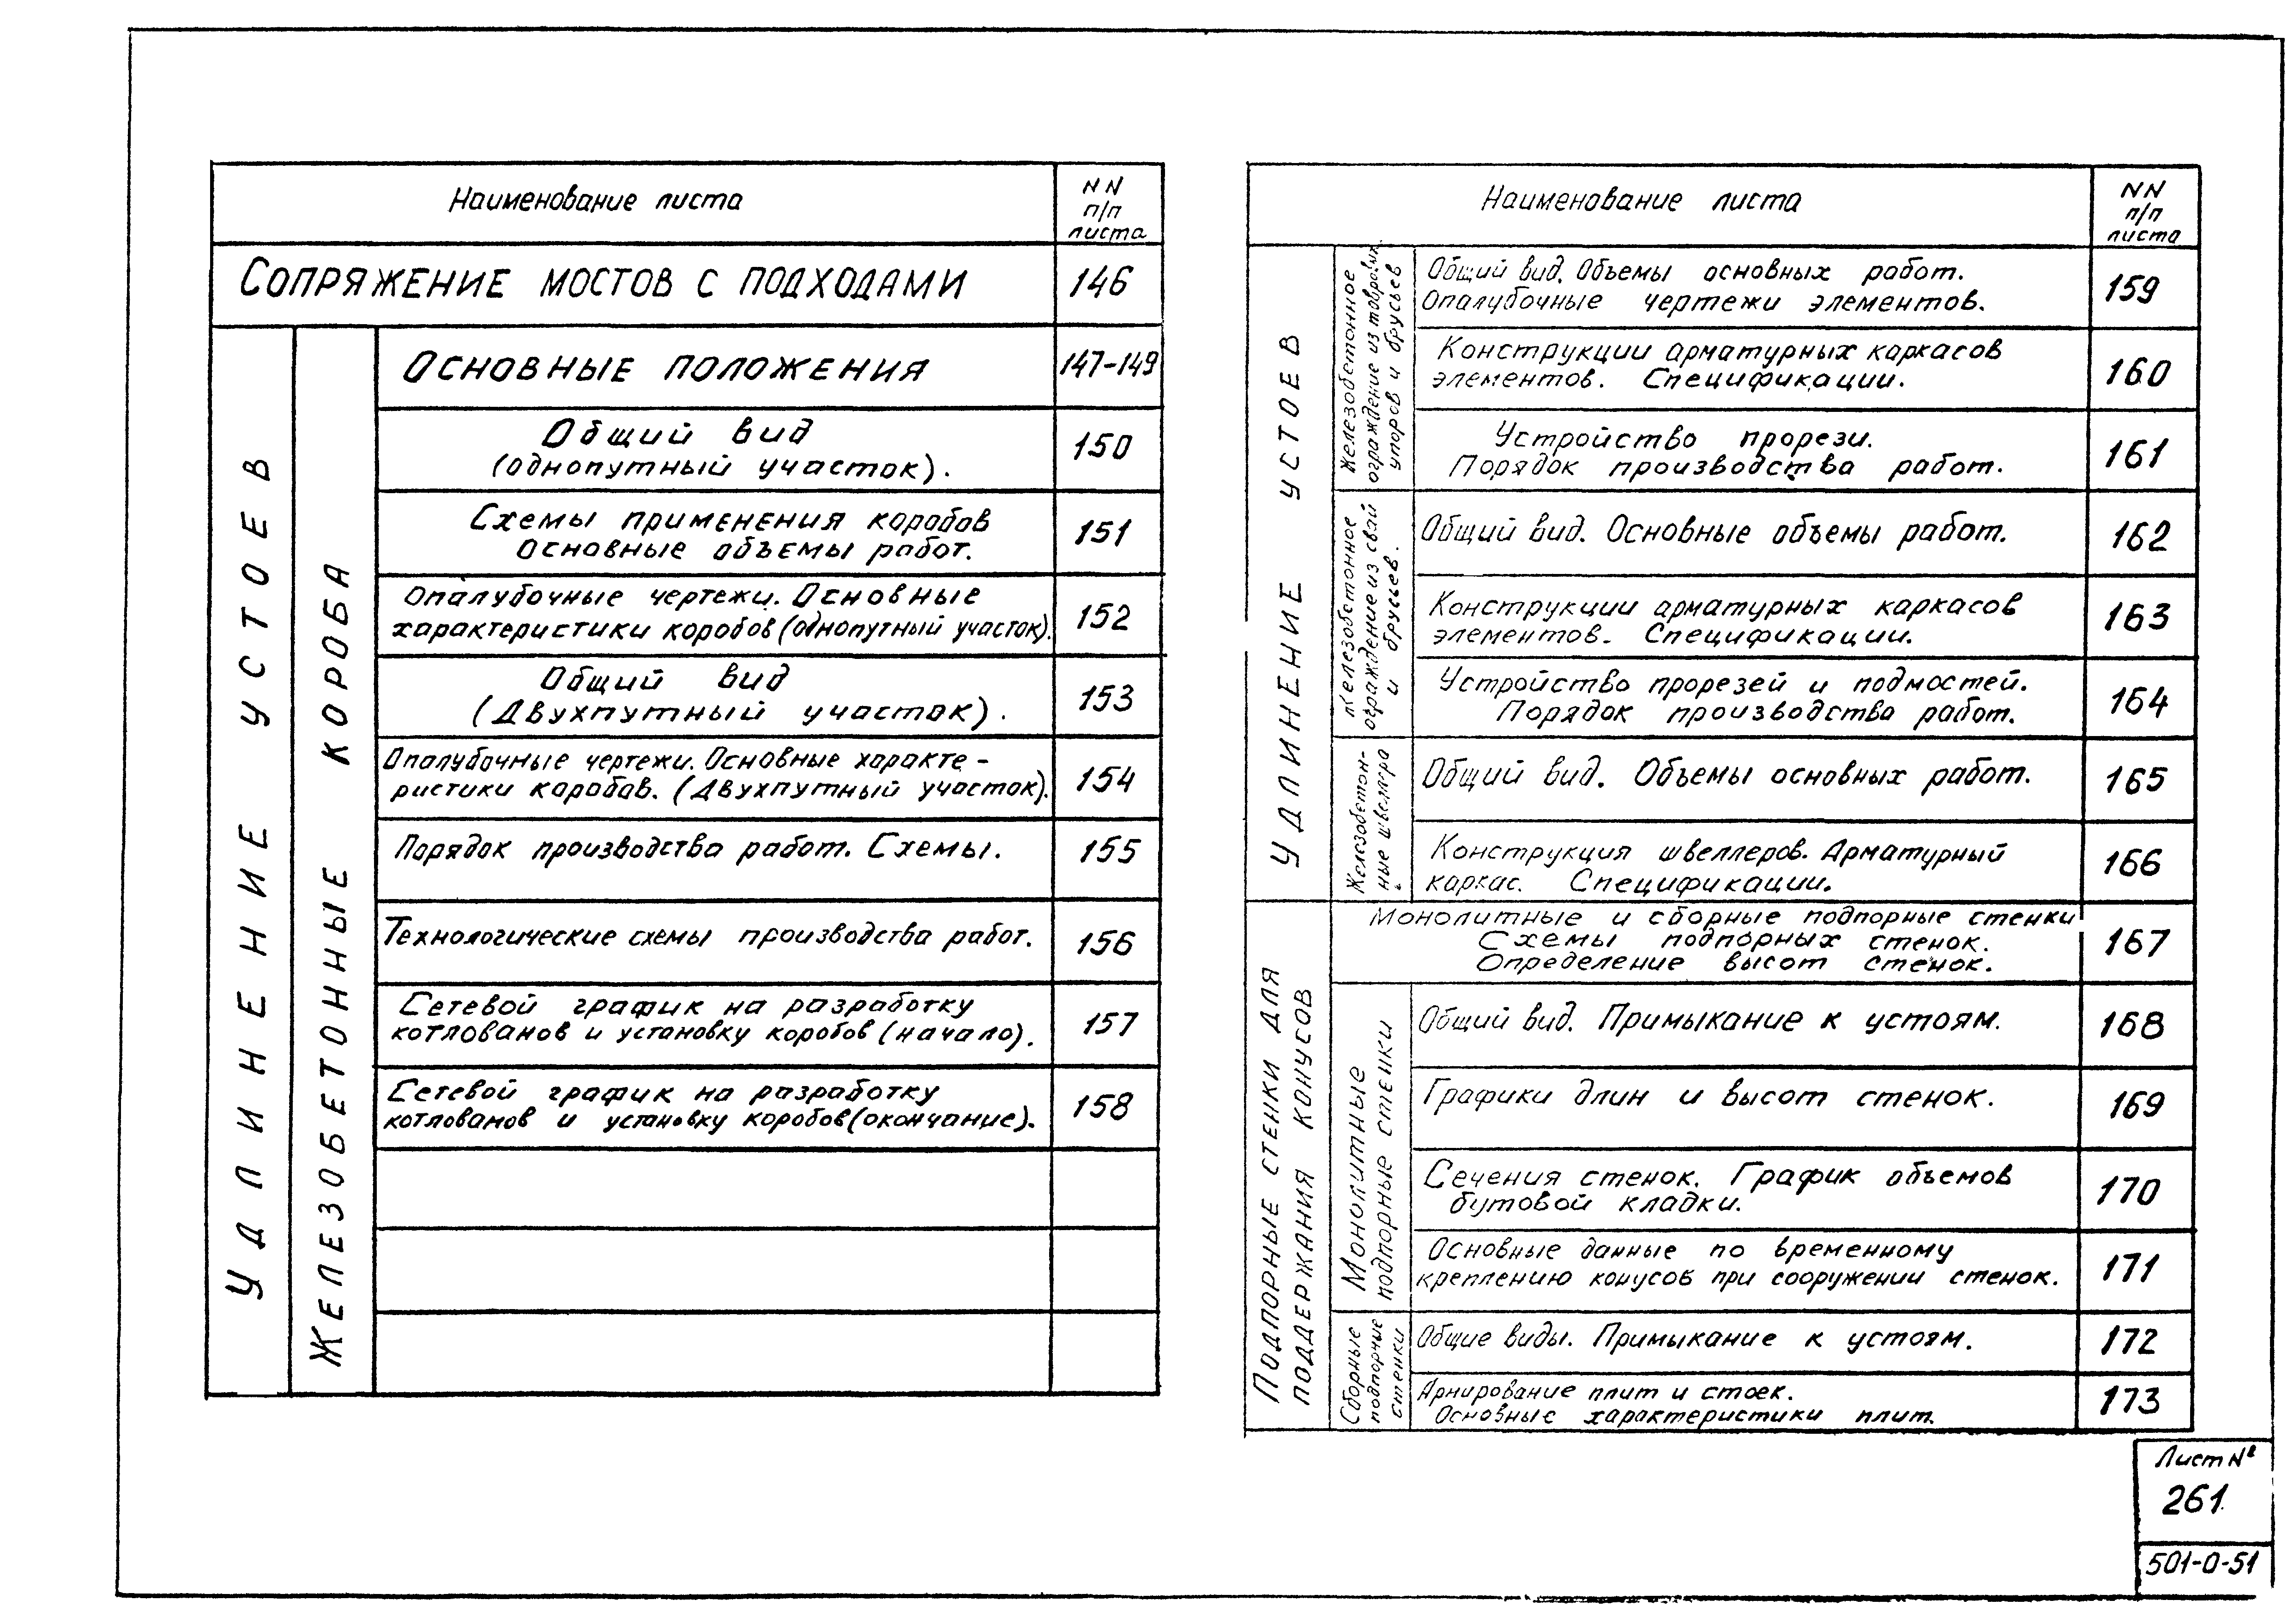 Наименование листа
NN
п/п
листа
Сопряжение мостов с подходами
146
Удлинение устоев
Железобетонные короба
Основные положения
147-149
Общий вид
(однопутный участок).
150
Схемы применения коробов
Основные объемы работ.
151
Опалубочные чертежи. Основные
характеристики коробов (однопутный участок).
152
Общий вид
(Двухпутный участок).
153
Опалубочные чертежи. Основные характе-
ристики коробов. (Двухпутный участок).
154
Порядок производства работ. Схемы.
155
Технологические схемы производства работ.
156
Сетевой график на разработку
котлованов и установку коробов (начало).
157
Сетевой график на разработку
котлованов и установку коробов (окончание).
158
Наименование листа
NN
п/п
листа
Удлинение устоев
Железобетонное
ограждение из тавровых
упоров и брусьев
Общий вид. Объемы основных работ.
Опалубочные чертежи элементов.
159
Конструкции арматурных каркасов
элементов. Спецификации.
160
Устройство прорези.
Порядок производства работ.
161
Железобетонное
ограждение из свай
и брусьев.
Общий вид. Основные объемы работ.
162
Конструкции арматурных каркасов
элементов. Спецификации.
163
Устройство прорезей и подмостей.
Порядок производства работ.
164
Железобетон-
ные швеллера
Общий вид. Объемы основных работ.
165
Конструкция швеллеров. Арматурный
каркас. Спецификации.
166
Подпорные стенки для
поддержания конусов
Монолитные и сборные подпорные стенки
Схемы подпорных стенок.
Определение высот стенок.
167
Монолитные
подпорные стенки
Общий вид. Примыкание к устоям.
168
Графики длин и высот стенок.
169
Сечения стенок. График объемов
бутовой кладки.
170
Основные данные по временному
креплению конусов при сооружении стенок.
171
Сборные
подпорные
стенки
Общие виды. Примыкание к устоям.
172
Армирование плит и стоек.
Основные характеристики плит.
173
Лист №
261
501-0-51